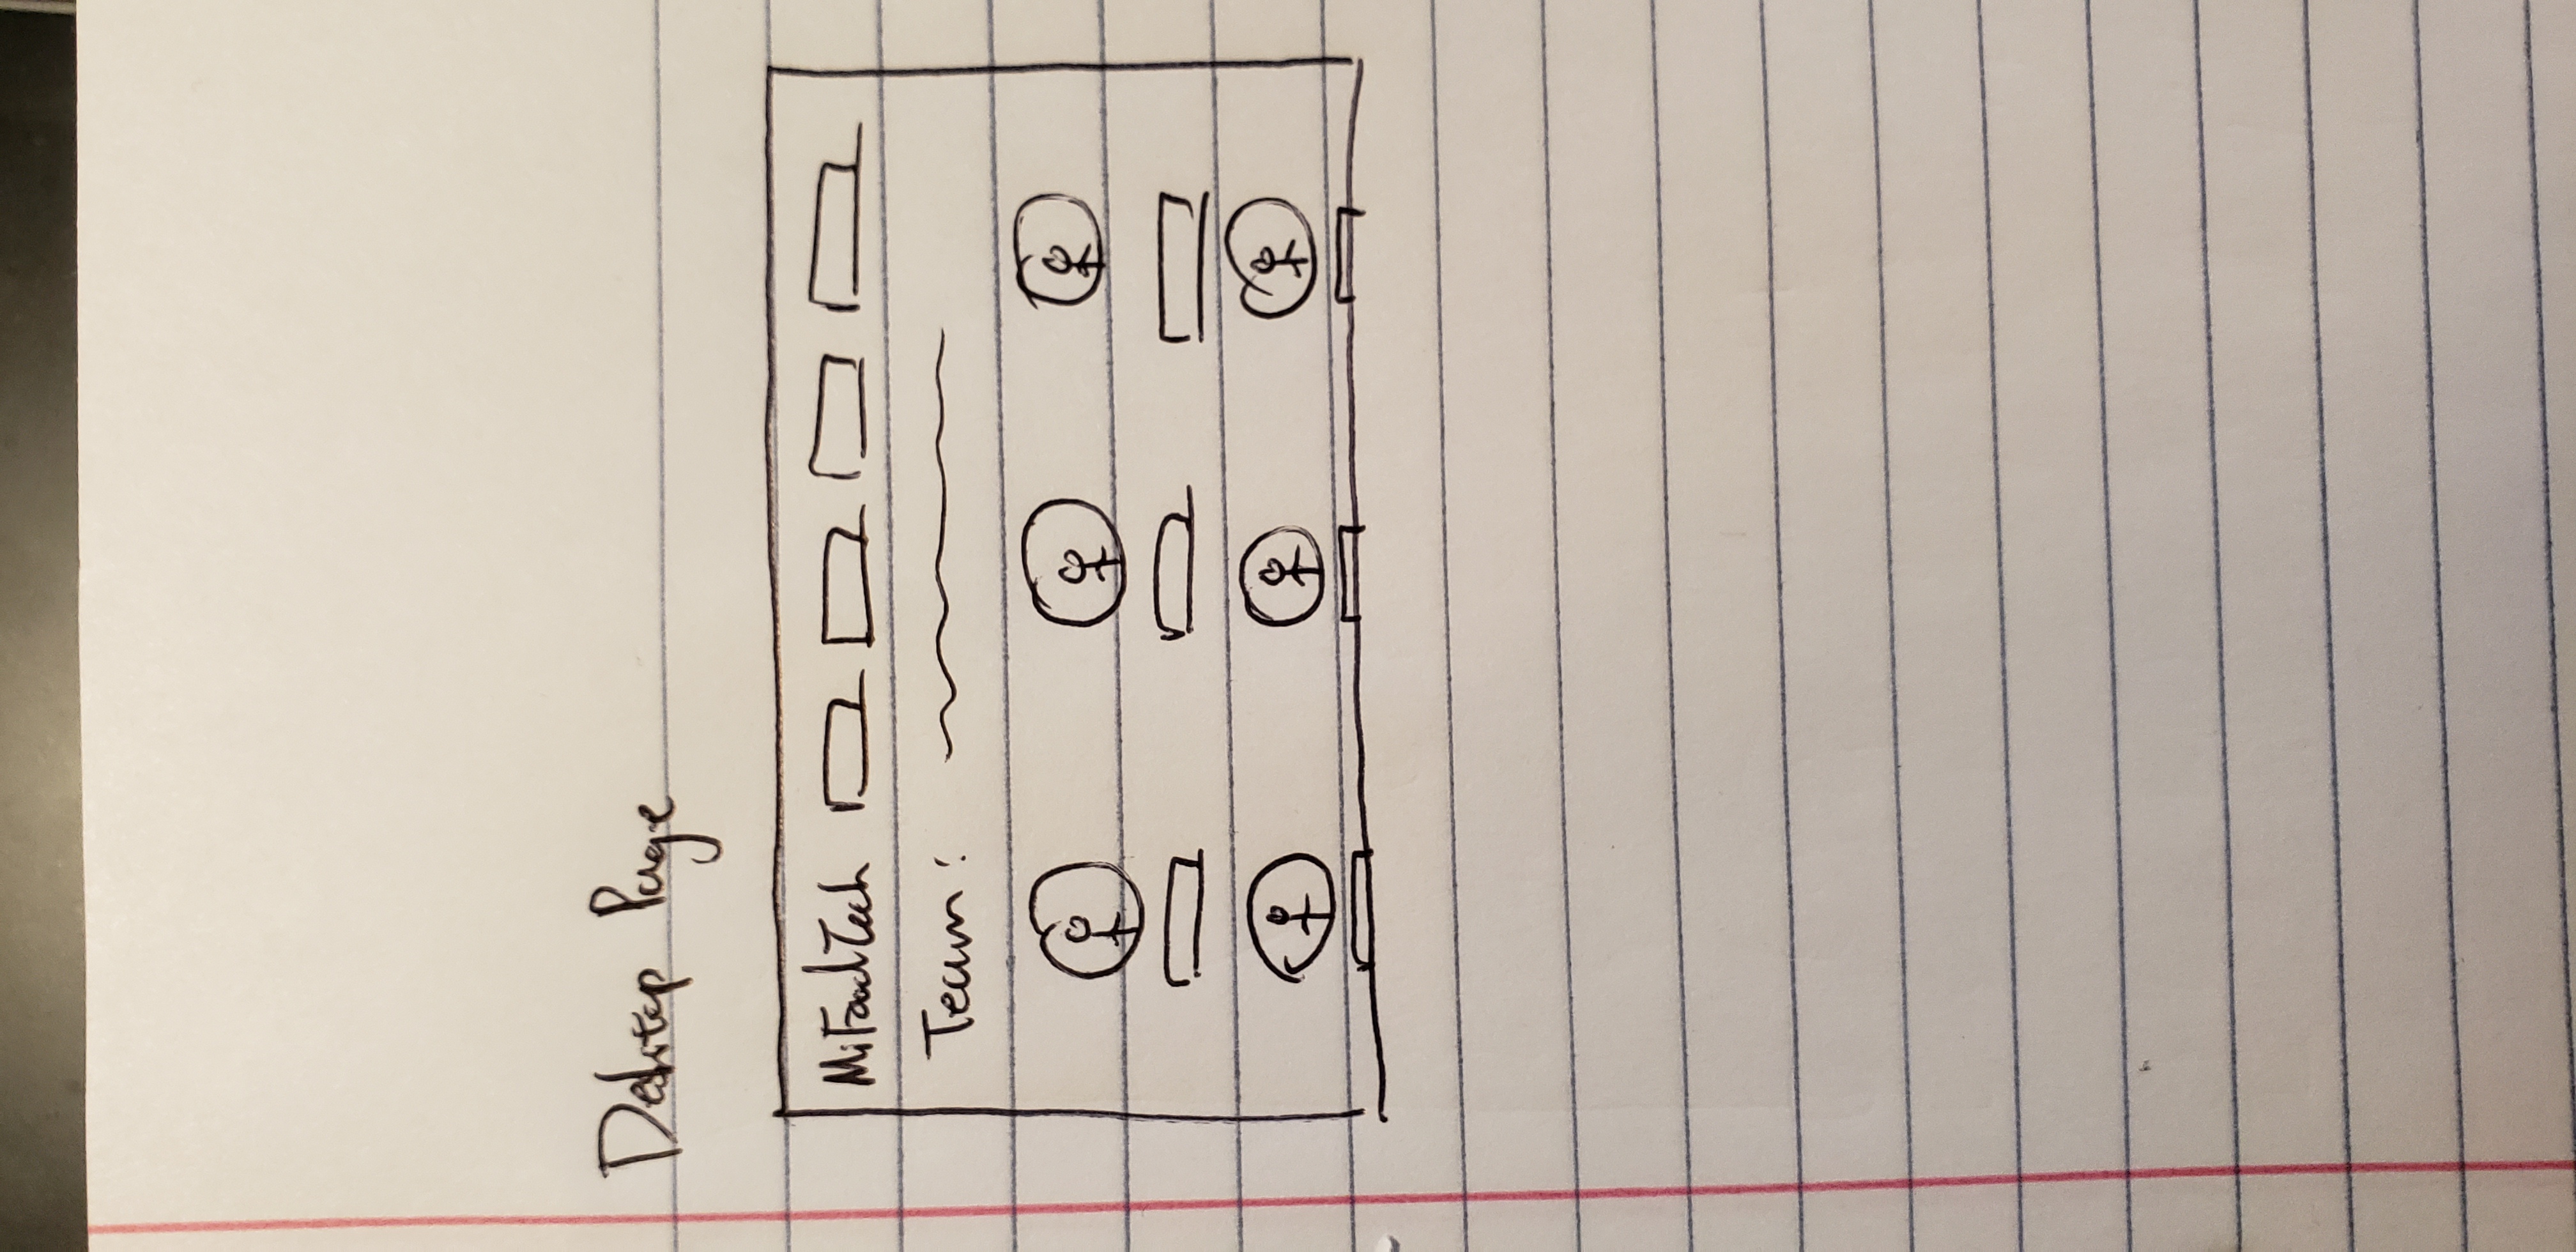 Desktop Page
MiFoodTech
Team: